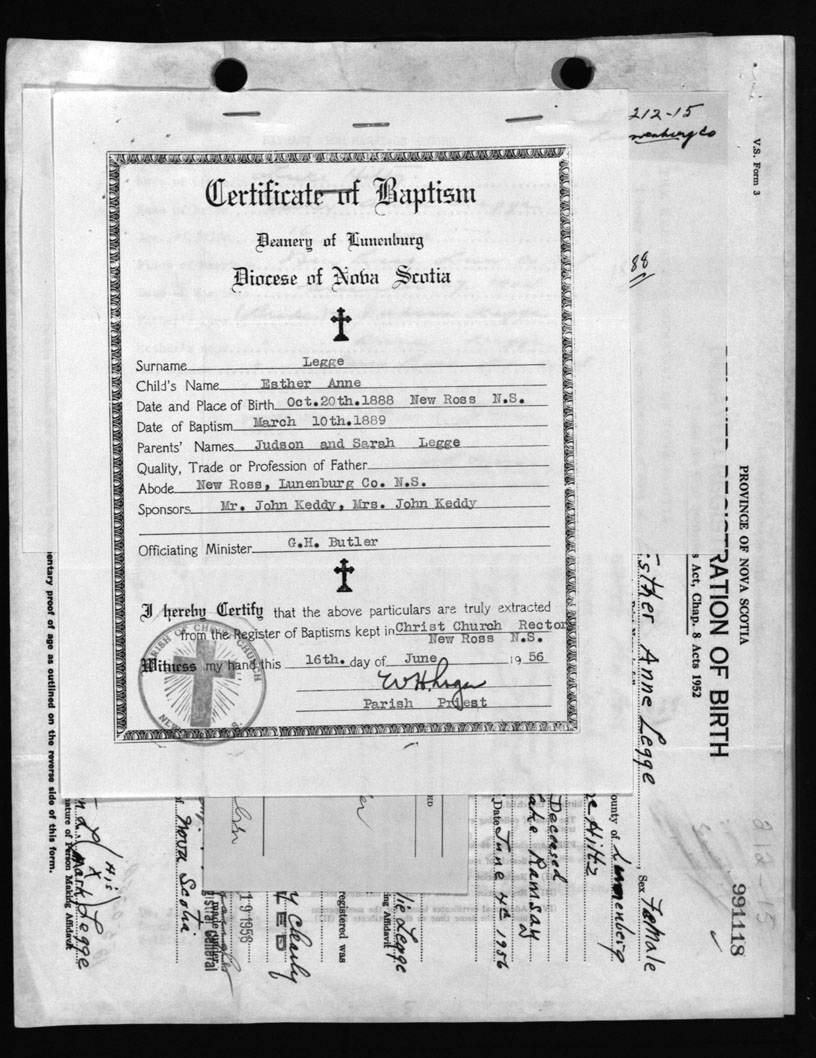 212-15
V.S. Form 3
88
Certificate of Baptism
Deanery of Lunenburg
Diocese of Nova Scotia
Surname Legge
Child's Name Esther Anne
Date and Place of Birth Oct.20th.1888 New Ross N.S.
Date of Baptism March 10th.1889
Parents' Names Judson and Sarah Legge
Quality, Trade or Profession of Father
Abode New Ross, Lunenburg Co. N.S.
Sponsors Mr. John Keddy, Mrs. John Keddy
Officiating Minister G.H. Butler
I hereby Certify that the above particulars are truly extracted
from the Register of Baptisms kept in Christ Church Rector
New Ross N.S.
Witness my hand this 16th. day of June 1956
Parish Priest
PARISH OF CHRIST CHURCH
PROVINCE OF NOVA SCOTIA
RATION OF BIRTH
s Act, Chap. 8 Acts 1952
Esther Anne Legge
Sex Female
991118
ounty of Lunenberg
Hiltz
Deceased
ake Ramsay
Date June 4th 1956
lie Legge
ing Affidavit
registered was
y Charly
19 1956
made under
istrar General
of Nova Scotia
His
X
mark Legge
ature of Person Making Affidavit
entary proof of age as outlined on the reverse side of this form.
212-15